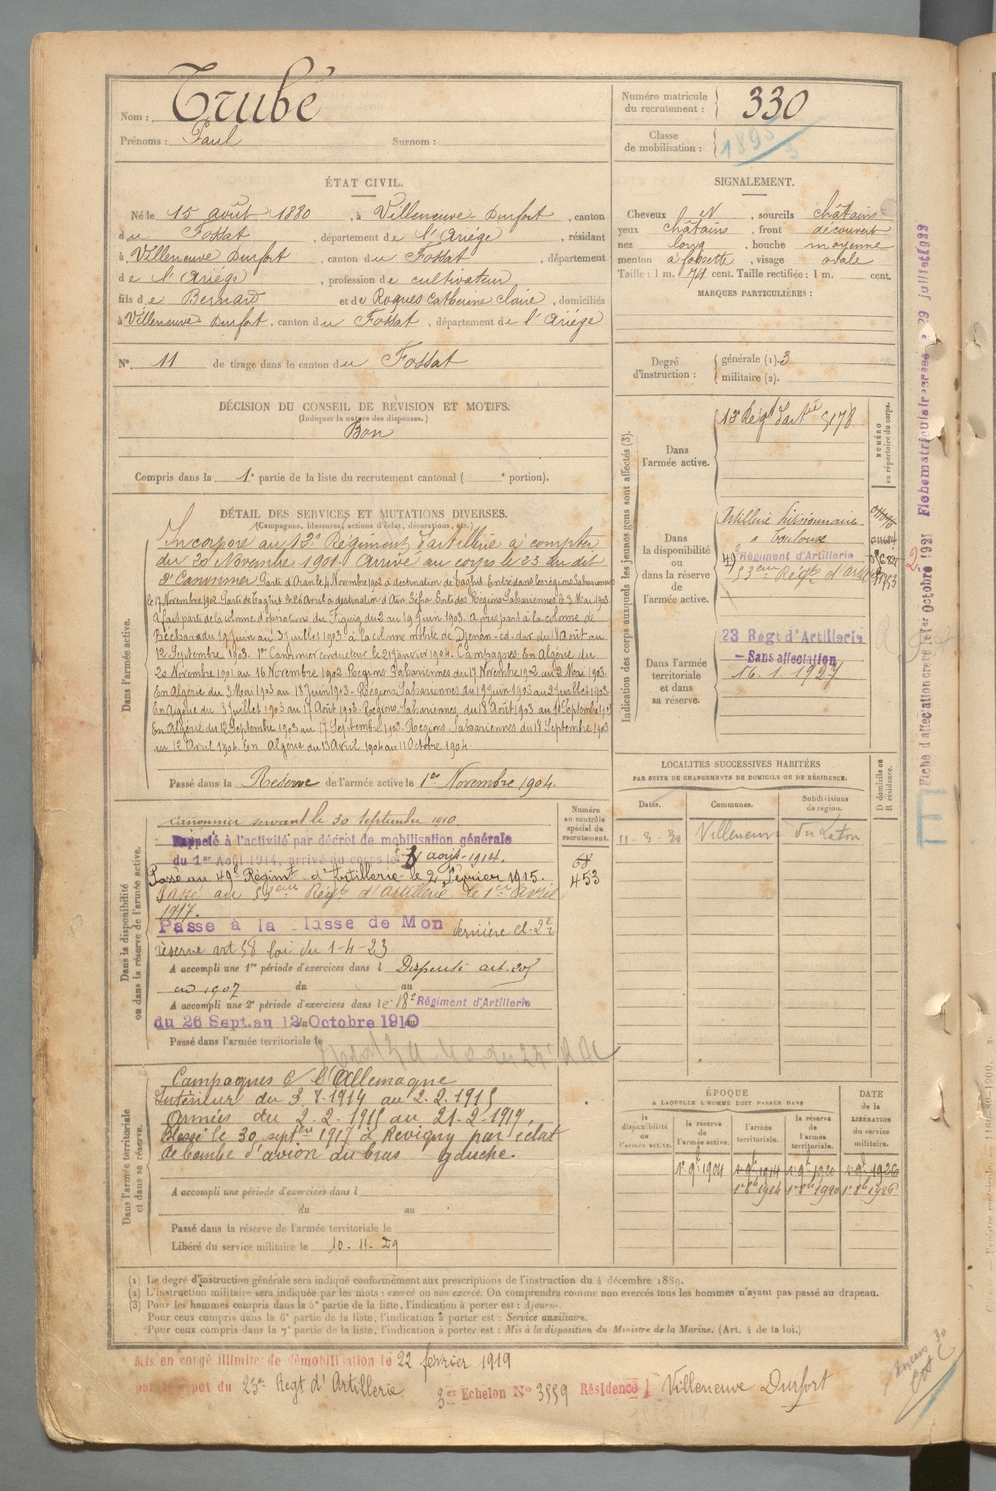 Nom : Trubé
Prénoms : Paul Surnom :
Numéro matricule du recrutement : 330
Classe de mobilisation :
ÉTAT CIVIL.
Né le 15 août 1880, à Villeneuve Durfort, canton
du Fossat, département de l'Ariège, résidant
à Villeneuve Durfort, canton du Fossat, département
de l'Ariège, profession de cultivateur
fils de Bernard et de Roques Catherine Claire, domiciliés
à Villeneuve Durfort, canton du Fossat, département de l'Ariège
N° 11 de tirage dans le canton du Fossat
SIGNALEMENT.
Cheveux N, sourcils châtains
yeux châtains, front découvert
nez long, bouche moyenne
menton à fossette, visage ovale
Taille : 1 m. 74 cent. Taille rectifiée : 1 m. cent.
MARQUES PARTICULIÈRES :
Degré d'instruction : générale (1). 3
militaire (2).
DÉCISION DU CONSEIL DE RÉVISION ET MOTIFS.
(Indiquer la nature des dispenses.)
Bon
Compris dans la 1e partie de la liste du recrutement cantonal ( e portion).
DÉTAIL DES SERVICES ET MUTATIONS DIVERSES.
(Campagnes, blessures, actions d'éclat, décorations, etc.)
Dans l'armée active.
Incorporé au 13e Régiment d'artillerie à compter
du 20 Novembre 1901. Arrivé au corps le 23 du dit
2e Canonnier. Parti d'Oran le Novembre 1902 à destination de Taghit. Entré dans les régions Sahariennes
le 17 Novembre 1902. Parti de Taghit le 26 Avril à destination d'Aïn Sefra. Sorti des Régions Sahariennes le 3 Mai 1903.
A fait partie de la colonne d'opérations du Figuig du 2 au 19 Juin 1903. A pris part à la colonne de
Béchar du 19 Juin au 31 Juillet 1903 à la colonne mobile de Djenan-ed-dar du 18 Août au
12 Septembre 1903. 1er Canonnier conducteur le 21 Janvier 1904. Campagnes: En Algérie du
20 Novembre 1901 au 16 Novembre 1902. Régions Sahariennes du 17 Novembre 1902 au 2 Mai 1903.
En Algérie du 3 Mai 1903 au 18 Juin 1903. Régions Sahariennes du 19 Juin 1903 au 2 Juillet 1903.
En Algérie du 3 Juillet 1903 au 17 Août 1903. Régions Sahariennes du 18 Août 1903 au 11 Septembre 1903
En Algérie du 12 Septembre 1903 au 17 Septembre 1903. Régions Sahariennes du 18 Septembre 1903
au 12 Avril 1904. En Algérie du 13 Avril 1904 au 11 Octobre 1904.
Passé dans la Réserve de l'armée active le 1er Novembre 1904.
Indication des corps auxquels les jeunes gens sont affectés (3).
NUMÉRO au répertoire du corps.
Dans l'armée active.
13e Régt d'artie 5178
Dans la disponibilité ou dans la réserve de l'armée active.
Artillerie divisionnaire
à Toulouse
49e Régiment d'Artillerie
53eme Régt d'art
Dans l'armée territoriale et dans sa réserve.
23 Régt d'Artillerie
Sans affectation
16.1.1927
Fiche d'affectation créée le 1er Octobre 1921 Fiche matriculaire créée le 29 juillet 1922
LOCALITÉS SUCCESSIVES HABITÉES
PAR SUITE DE CHANGEMENTS DE DOMICILE OU DE RÉSIDENCE.
Dates. Communes. Subdivisions de région. D domicile ou R résidence.
11-3-30 Villeneuve du Latou
Dans la disponibilité ou dans la réserve de l'armée active.
Numéro au contrôle spécial du recrutement.
453
Canonnier servant le 30 Septembre 1910.
Rappelé à l'activité par décret de mobilisation générale
du 1er Août 1914, arrivé au corps le 3 août 1914.
Passé au 49e Régiment d'Artillerie le 2 Février 1915.
Passé au 53eme Régt d'artillerie le 1er avril
1917.
Passé à la classe de Mon dernière cl. 2e
réserve art 58 loi du 1-4-23
A accompli une 1re période d'exercices dans l Dispensé art.
en 1907 du au
A accompli une 2e période d'exercices dans le 18e Régiment d'Artillerie
du 26 Sept. au 12 Octobre 1910
Passé dans l'armée territoriale le
Dans l'armée territoriale et dans sa réserve.
Campagnes C/ l'Allemagne
Intérieur du 3.8.1914 au 2.2.1915
Armées du 2-2-1915 au 21-2-1919.
Blessé le 30 septbre 1917 à Revigny par éclat
de bombe d'avion du bras gauche.
A accompli une période d'exercices dans l
du au
Passé dans la réserve de l'armée territoriale le
Libéré du service militaire le 10-11-29
ÉPOQUE
A LAQUELLE L'HOMME DOIT PASSER DANS
la disponibilité de l'armée active. la réserve de l'armée active. l'armée territoriale. la réserve de l'armée territoriale. DATE de la LIBÉRATION du service militaire.
1er 9bre 1904 1er 9bre 1914 1er 9bre 1920 1er 9bre 1926
1er 8bre 1914 1er 8bre 1920 1er 8bre 1926
(1) Le degré d'instruction générale sera indiqué conformément aux prescriptions de l'instruction du 4 décembre 1889.
(2) L'instruction militaire sera indiquée par les mots : exercé ou non exercé. On comprendra comme non exercés tous les hommes n'ayant pas passé au drapeau.
(3) Pour les hommes compris dans la 5e partie de la liste, l'indication à porter est : Ajourné.
Pour ceux compris dans la 6e partie de la liste, l'indication à porter est : Service auxiliaire.
Pour ceux compris dans la 7e partie de la liste, l'indication à porter est : Mis à la disposition du Ministre de la Marine. (Art. 4 de la loi.)
Mis en congé illimité de démobilisation le 22 février 1919
par le dépot du 23e Régt d'Artillerie 3er Echelon N° 3559 Résidence Villeneuve Durfort